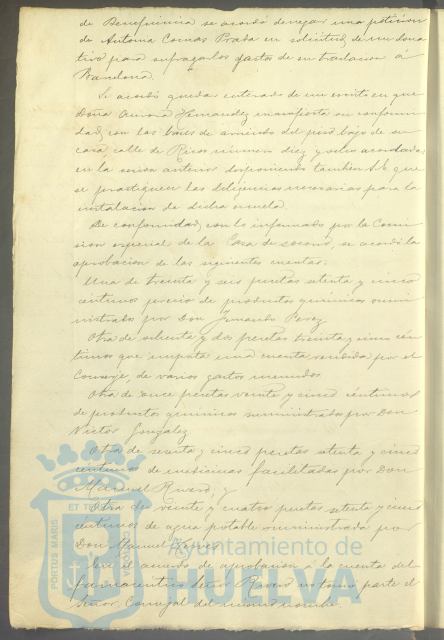 de Beneficencia se acordó denegar una petición
de Antonia Comas Prada en solicitud de un dona
tivo para sufragar los gastos de su traslacion á
Barcelona.
Se acordó quedar enterado de un escrito en que
Doña Aurora Hernandez manifiesta su conformi
dad con las bases de arriendo del piso bajo de su
casa calle de Ricos número diez y seis acordadas
en la sesion anterior disponiendo tambien S.E. que
se practiquen las diligencias necesarias para la
instalacion de dicha escuela.
De conformidad con lo informado por la Comi
sion especial de la Casa de socorro, se acordó la
aprobacion de las siguientes cuentas:
Una de treinta y seis pesetas setenta y cinco
centimos precio de productos químicos sumi
nistrados por Don Fernando Perez
Otra de ochenta y dos pesetas treinta y cinco cén
timos que importa una cuenta rendida por el
Conserje de varios gastos menudos
Otra de once pesetas veinte y cinco céntimos
de productos químicos suministrados por Don
Victor Gonzalez
Otra de sesenta y cinco pesetas setenta y cinco
centimos de medicinas facilitadas por Don
Manuel Rivero, y
Otra de veinte y cuatro pesetas setenta y cinco
centimos de agua potable suministrada por
Don Manuel
En el acuerdo de aprobacion á la cuenta del
farmaceutico Señor Rivero no tomó parte el
Señor Concejal del mismo nombre.
PORTUS MARIS ET TERRAE
Ayuntamiento de
HUELVA